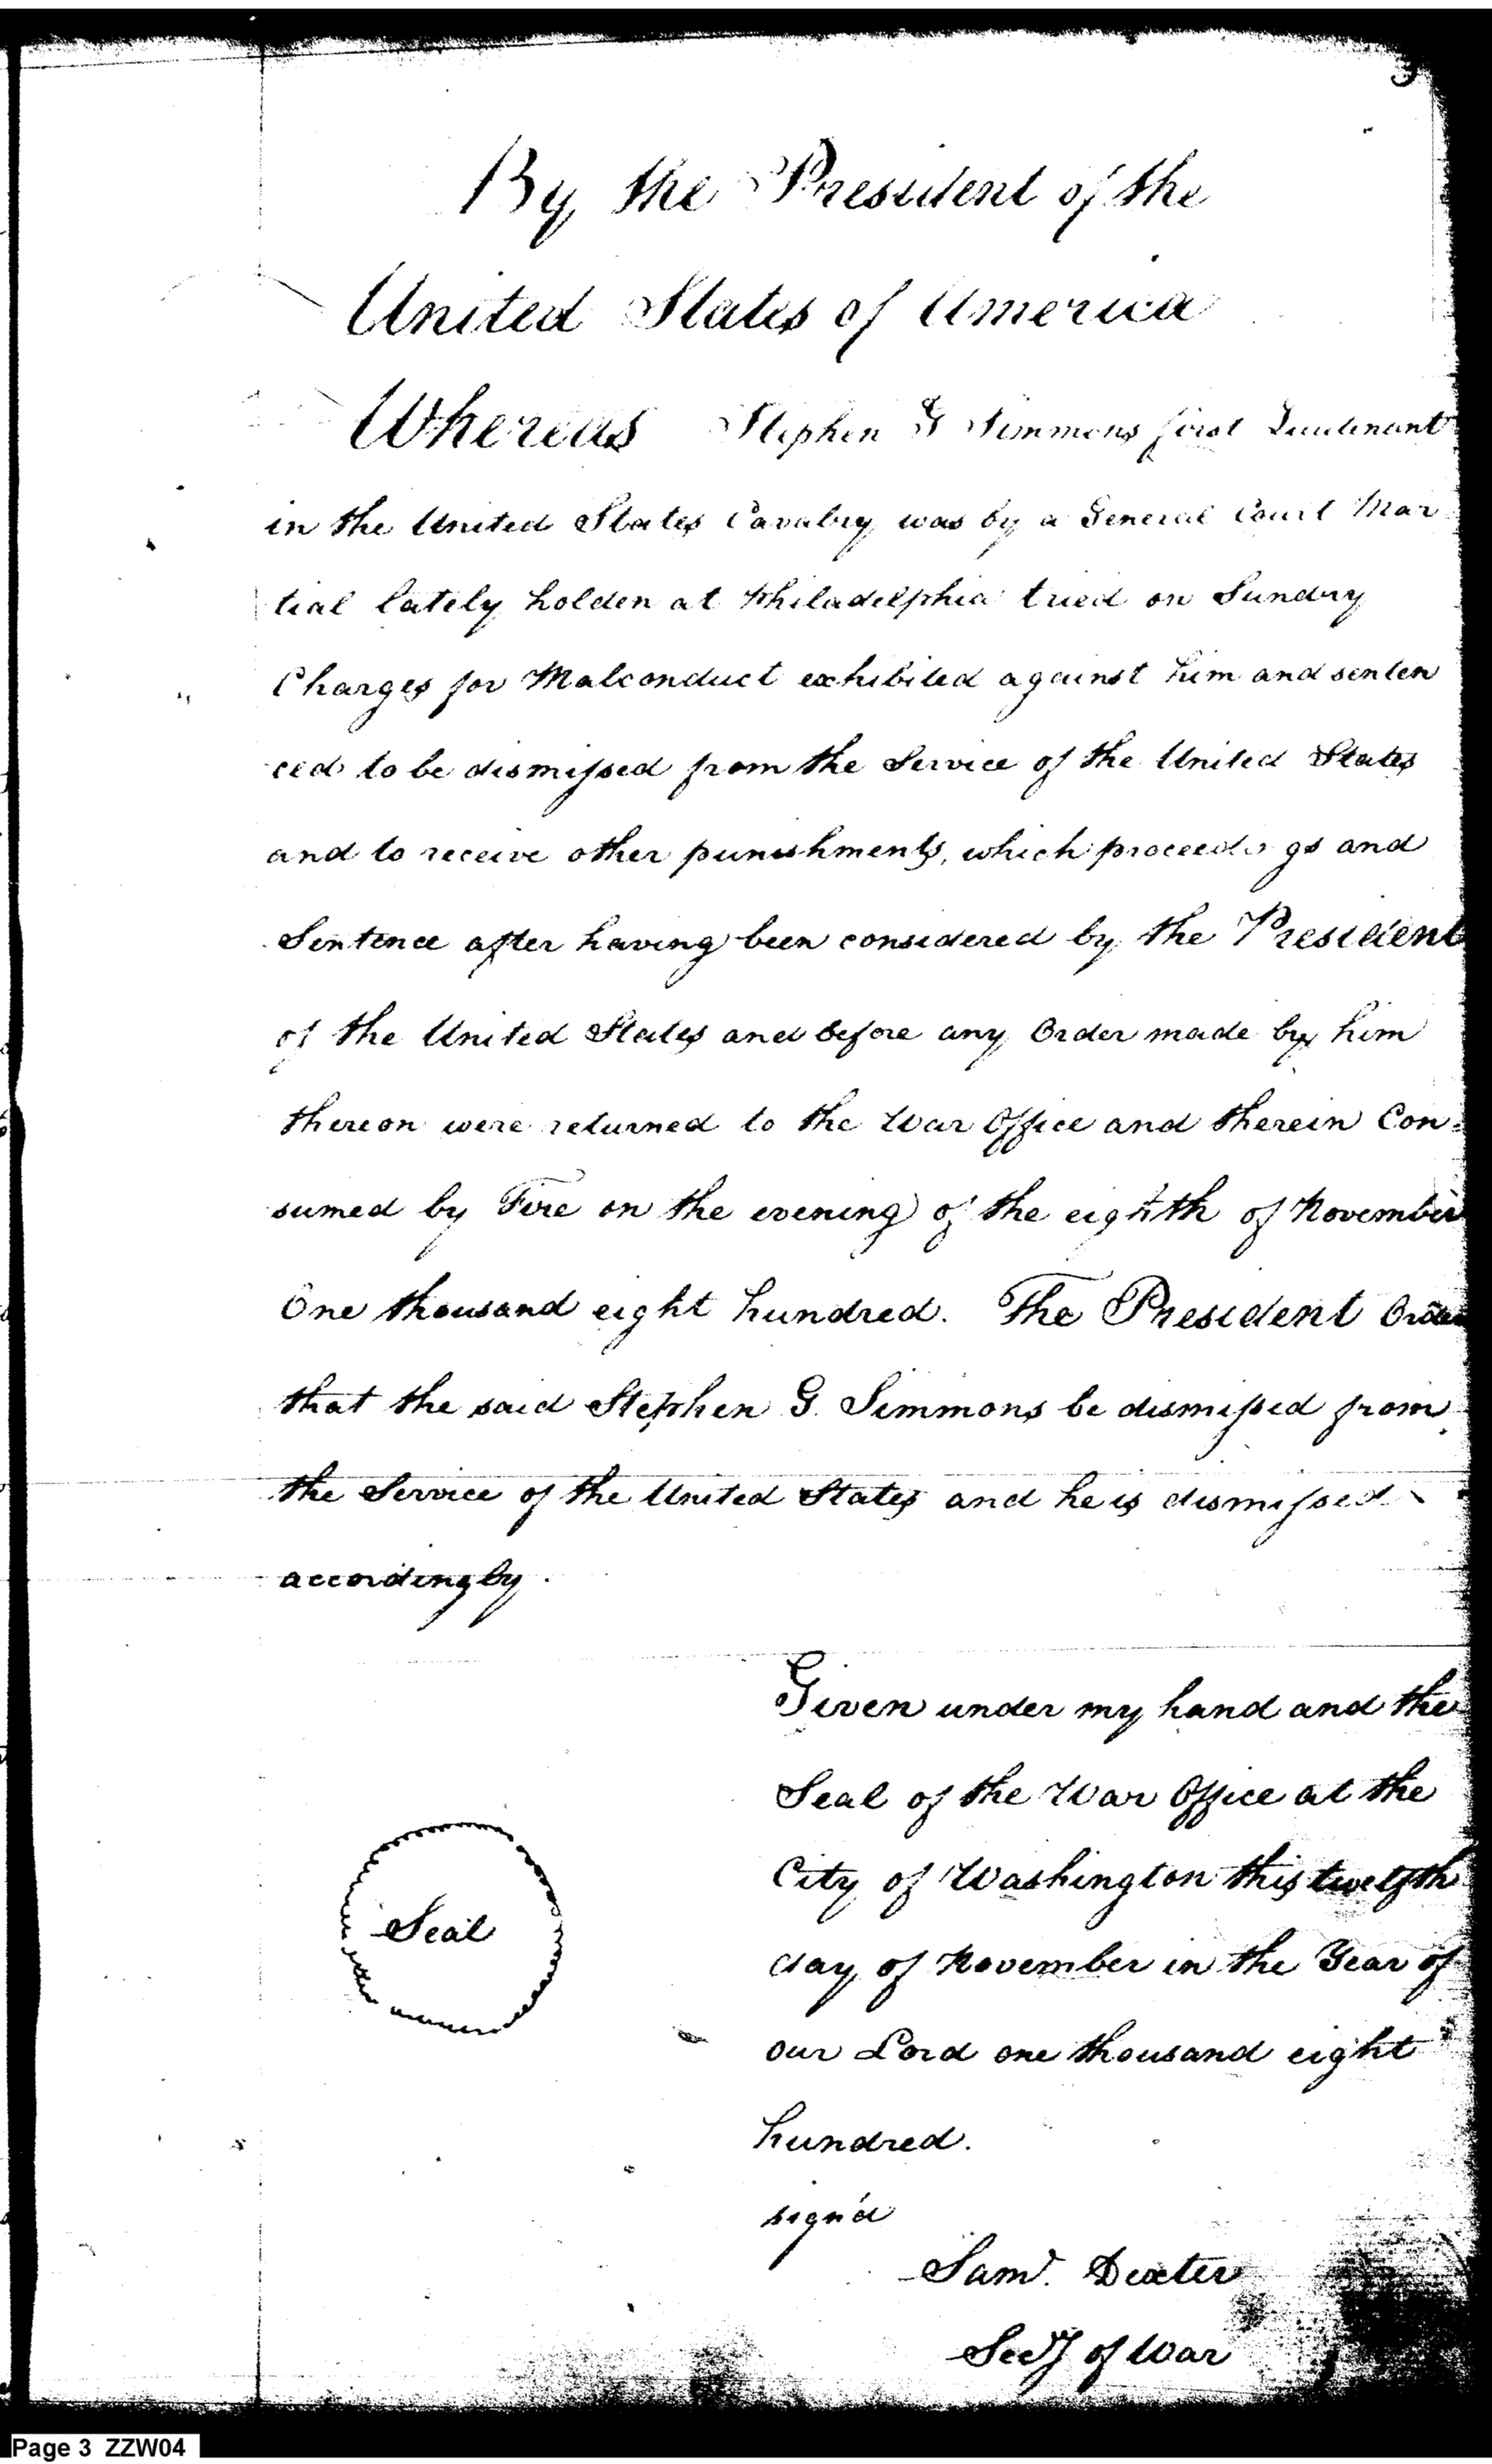 3
By the President of the
United States of America
Whereas Stephen G Simmons first Lieutenant
in the United States Cavalry was by a General Court Mar
tial lately holden at Philadelphia tried on Sundry
Charges for Malconduct exhibited against him and senten
ced to be dismissed from the Service of the United States
and to receive other punishments, which proceedings and
Sentence after having been considered by the President
of the United States and before any Order made by him
thereon were returned to the War Office and therein Con-
sumed by Fire on the evening of the eighth of November
One thousand eight hundred. The President Orders
that the said Stephen G. Simmons be dismissed from
the Service of the United States and he is dismissed
accordingly.
Given under my hand and the
Seal of the War Office at the
City of Washington this twelfth
day of November in the Year of
our Lord one thousand eight
hundred.
Seal
sign'd
Saml. Dexter
Secy of War
Page 3 ZZW04